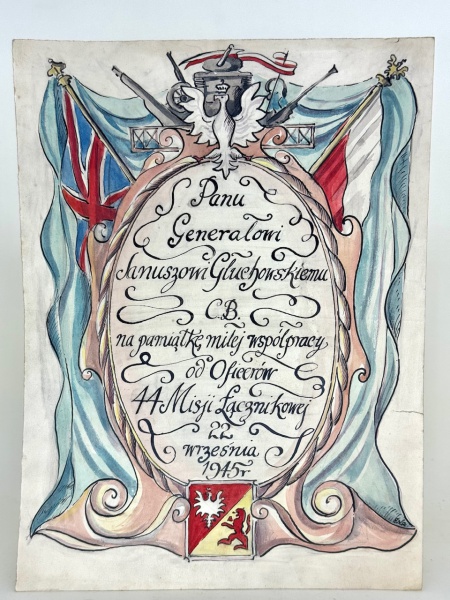 Panu
Generałowi
Januszowi Głuchowskiemu
C.B.
na pamiątkę miłej współpracy
od Oficerów
44 Misji Łącznikowej
22
września
1945r